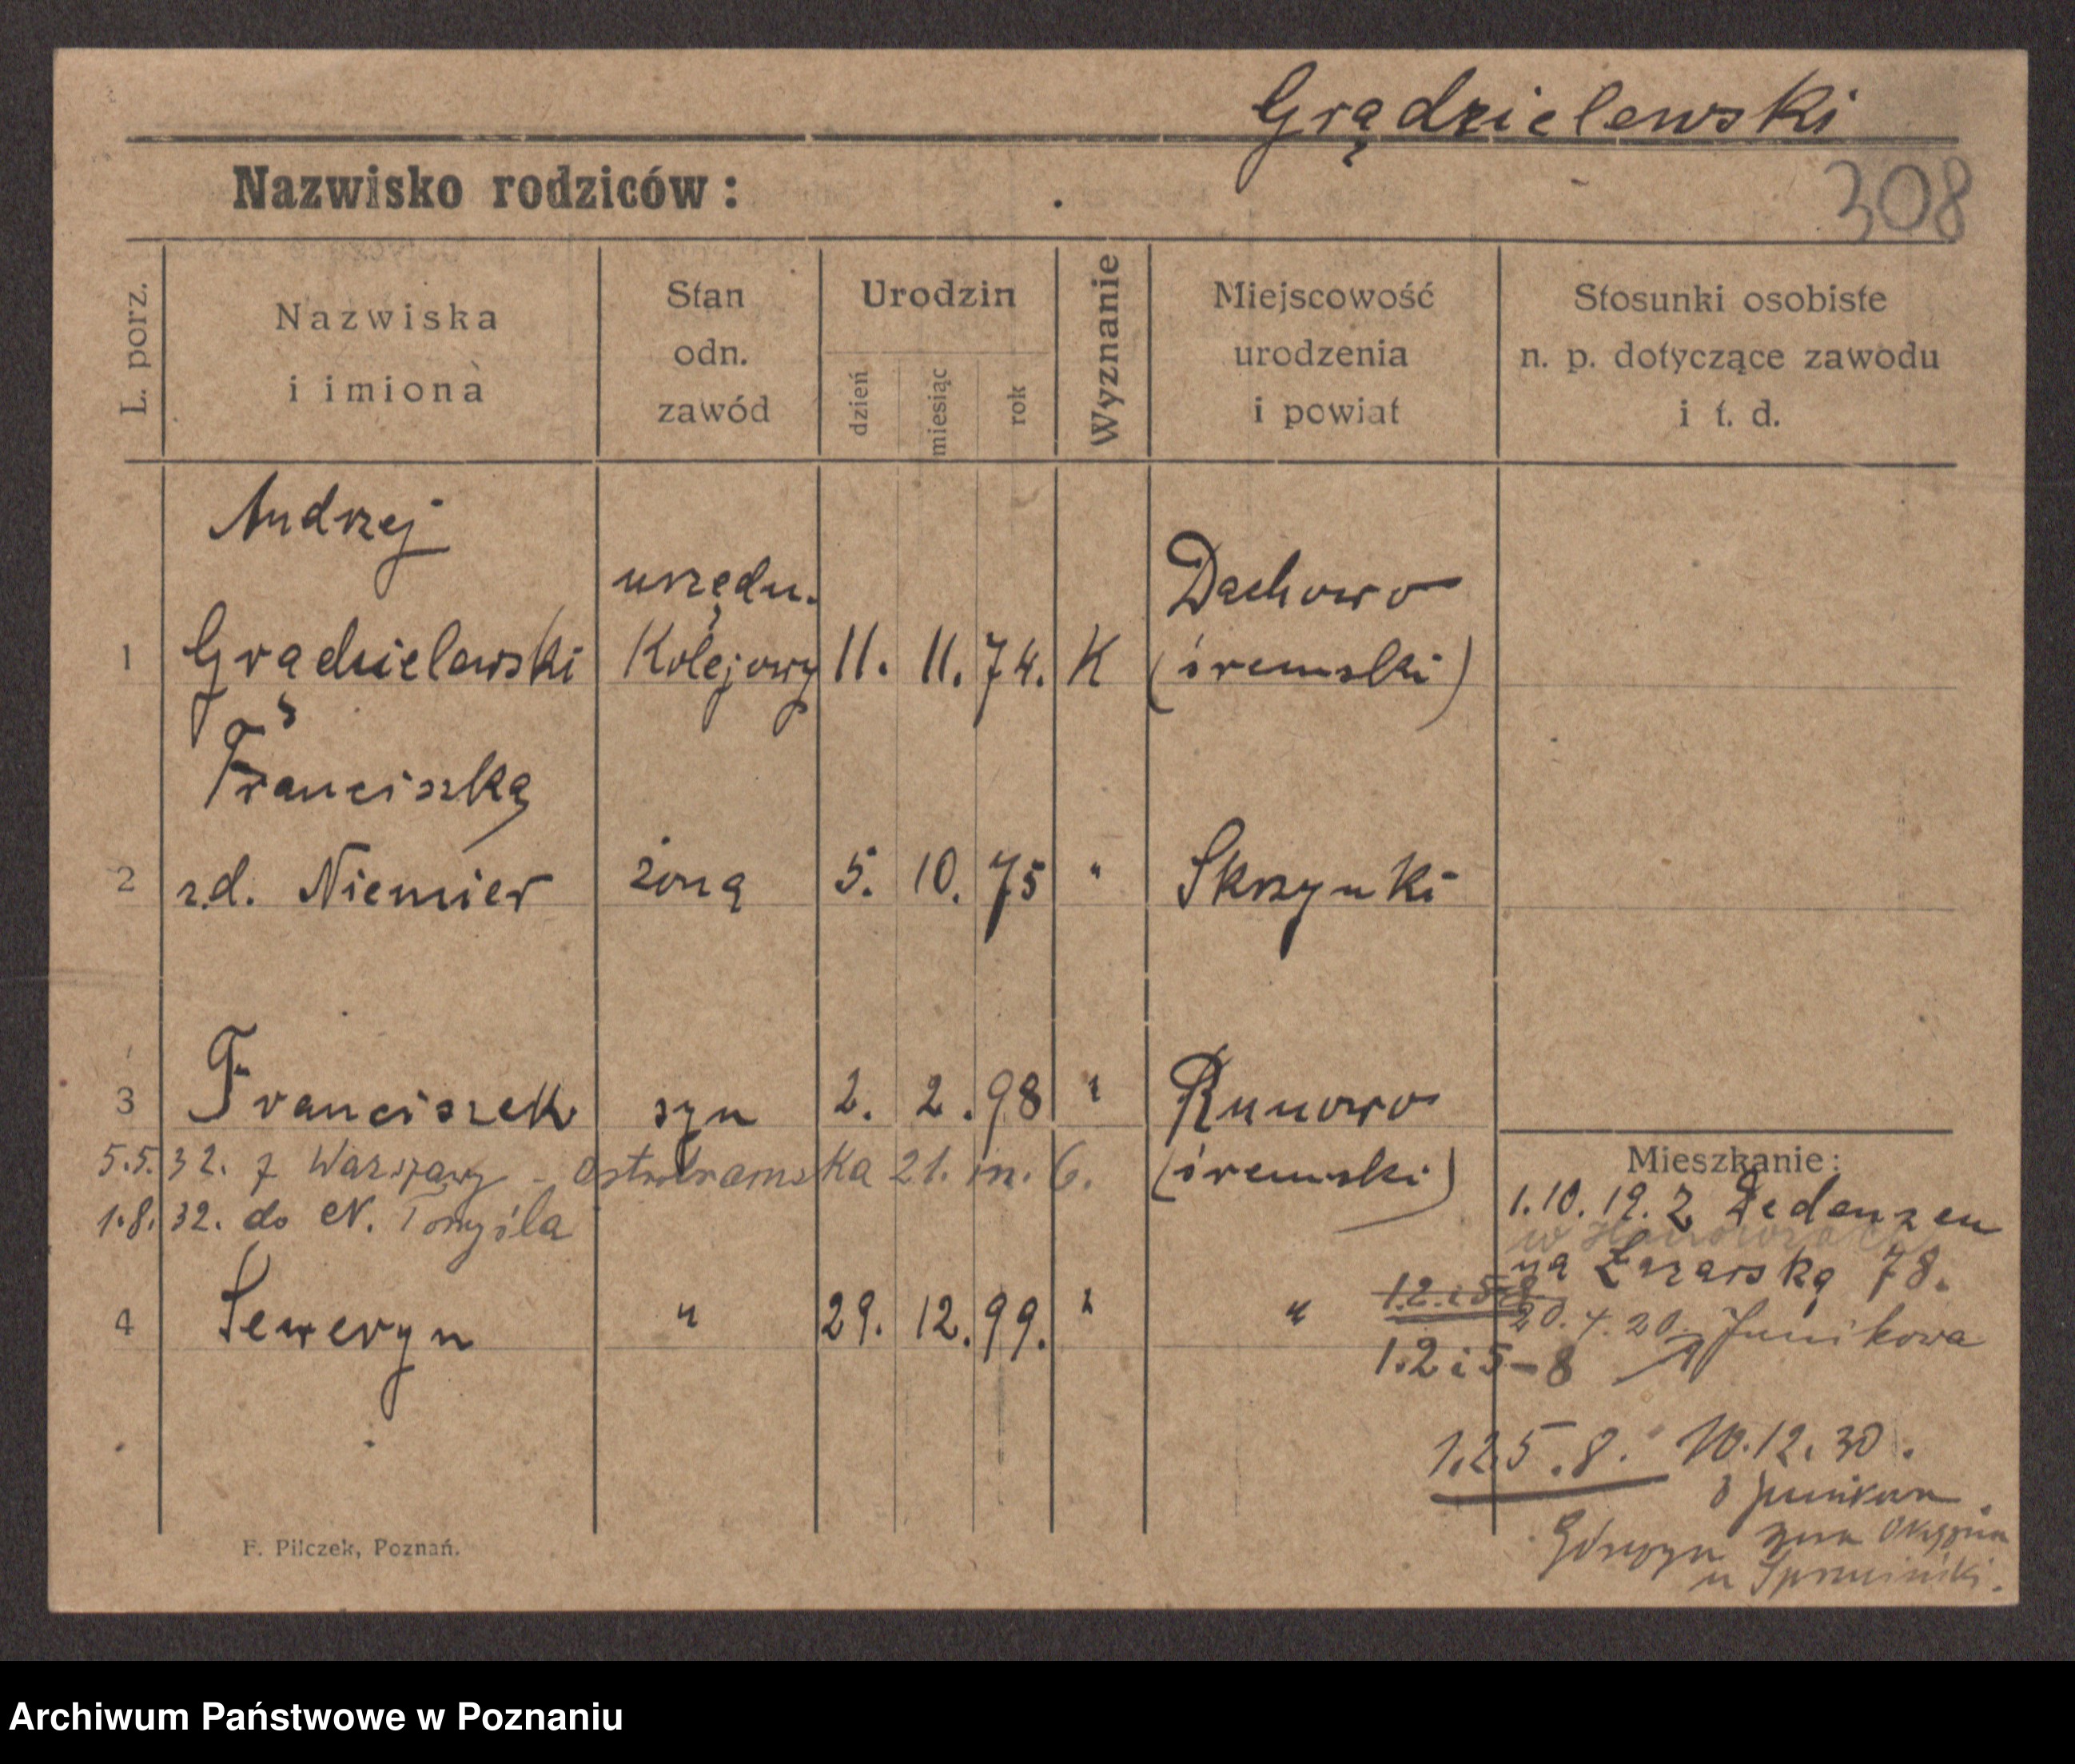 Grądzielewski
Nazwisko rodziców:
308
L. porz.
Nazwiska
i imiona
Stan
odn.
zawód
Urodzin
dzień
miesiąc
rok
Wyznanie
Miejscowość
urodzenia
i powiat
Stosunki osobiste
n. p. dotyczące zawodu
i t. d.
Andrzej
1 Grądzielewski urzędn. Kolejowy 11. 11. 74. K Dachowo
(śremski)
Franciszka
2 zd. Niemier żona 5. 10. 75 " Skrzynki
3 Franciszek syn 2. 2. 98 " Runowo
(śremski)
5.5.32. z Warszawy - Ostrobramska 21. m. 6.
1.8.32. do N. Tomyśla
4 Seweryn " 29. 12. 99. " "
Mieszkanie:
1.10.19. z
na Łazarską 78.
1.2.i 5-8
20.4.20. Junikowa
1.2 i 5-8
1.2.5.8. 10.12.30.
z Junikowa
Górczyn
u
F. Pilczek, Poznań.
Archiwum Państwowe w Poznaniu